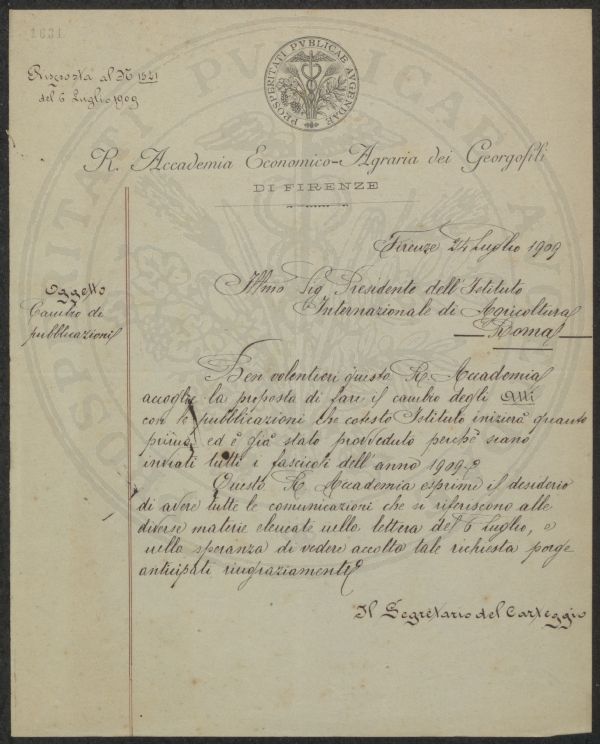 2631
Risposta al N 1521
del 6 Luglio 1909
PROSPERITATI PVBLICAE AVGENDAE
R. Accademia Economico-Agraria dei Georgofili
DI FIRENZE
Firenze 24 Luglio 1909
Oggetto
Cambio di
pubblicazioni
Illmo Sig Presidente dell'Istituto
Internazionale di Agricoltura
Roma
Ben volentieri questa R. Accademia
accoglie la proposta di fare il cambio degli Atti
con le pubblicazioni che cotesto Istituto inizierà quanto
prima, ed è già stato provveduto perchè siano
inviati tutti i fascicoli dell'anno 1909.
Questa R. Accademia esprime il desiderio
di avere tutte le comunicazioni che si riferiscono alle
diverse materie elencate nella lettera del 6 Luglio, e
nella speranza di vedere accolta tale richiesta porge
anticipati ringraziamenti
Il Segretario del Carteggio